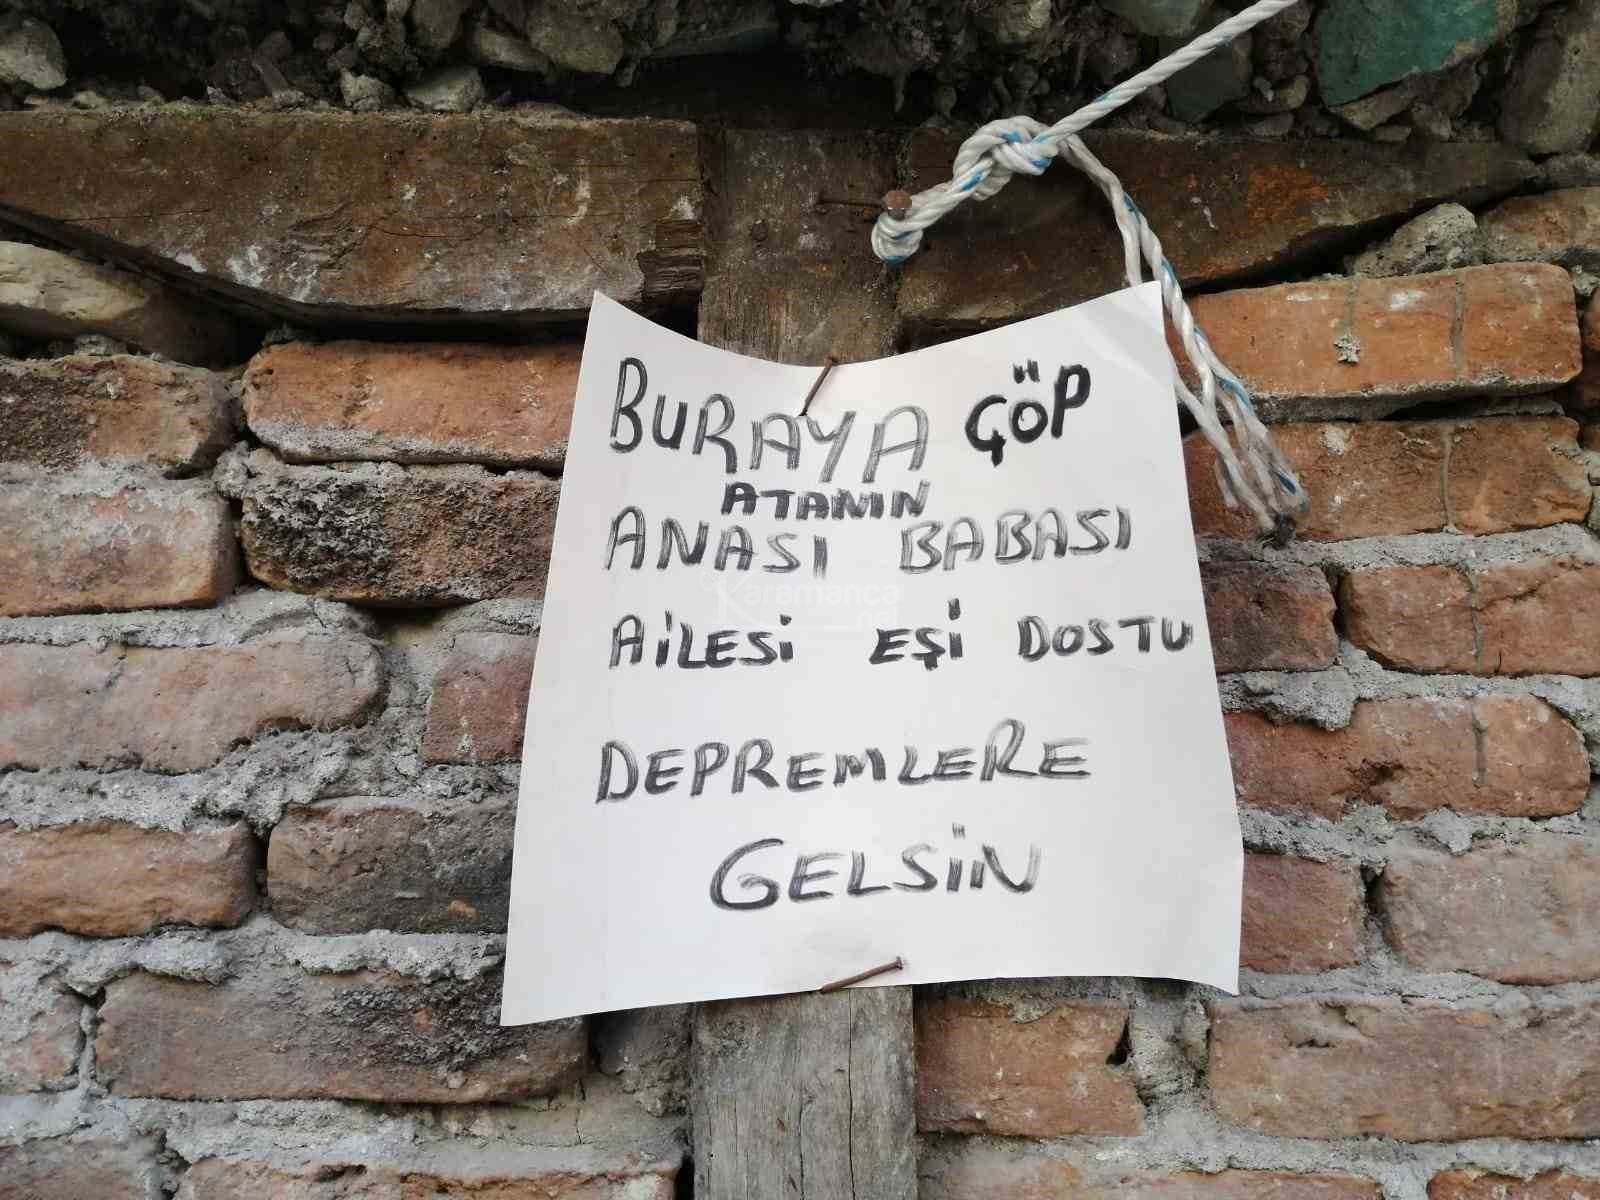 BURAYA ÇÖP
ATANIN
ANASI BABASI
AİLESİ EŞİ DOSTU
DEPREMLERE
GELSİN
Karamanca